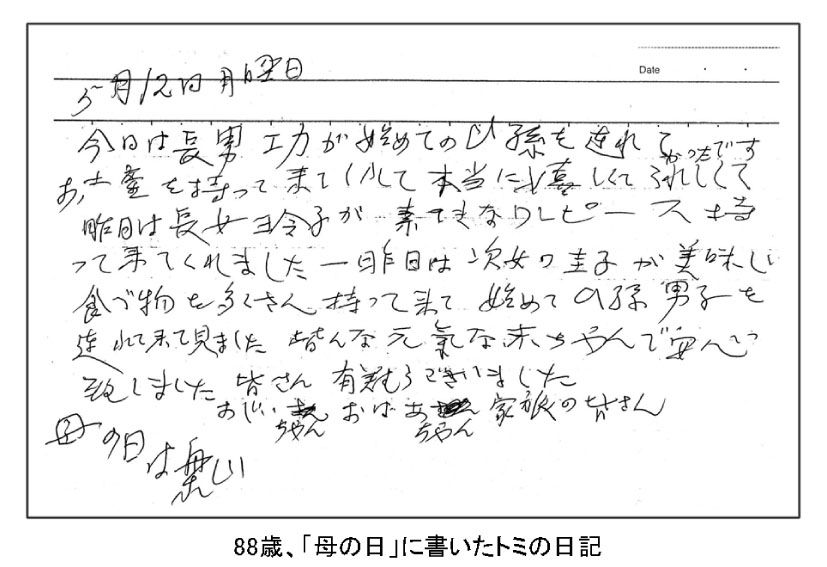 Date
5月12日月曜日
今日は長男 工力が始めてのひ孫も連れてかったです
お土産を持って来て 本当に嬉しくてうれしくて
昨日は長女 玲子が 素てきなワンピース持
って来てくれました 一昨日は 次女の圭子が 美味しい
食べ物を多くさん 持って来て 始めての孫 男子を
連れて来て見ました 皆んな元氣な赤ちゃんで安心
致しました 皆さん 有難うございました
おじいちゃん おばあちゃん 家族の皆さん
母の日は楽しい
88歳、「母の日」に書いたトミの日記